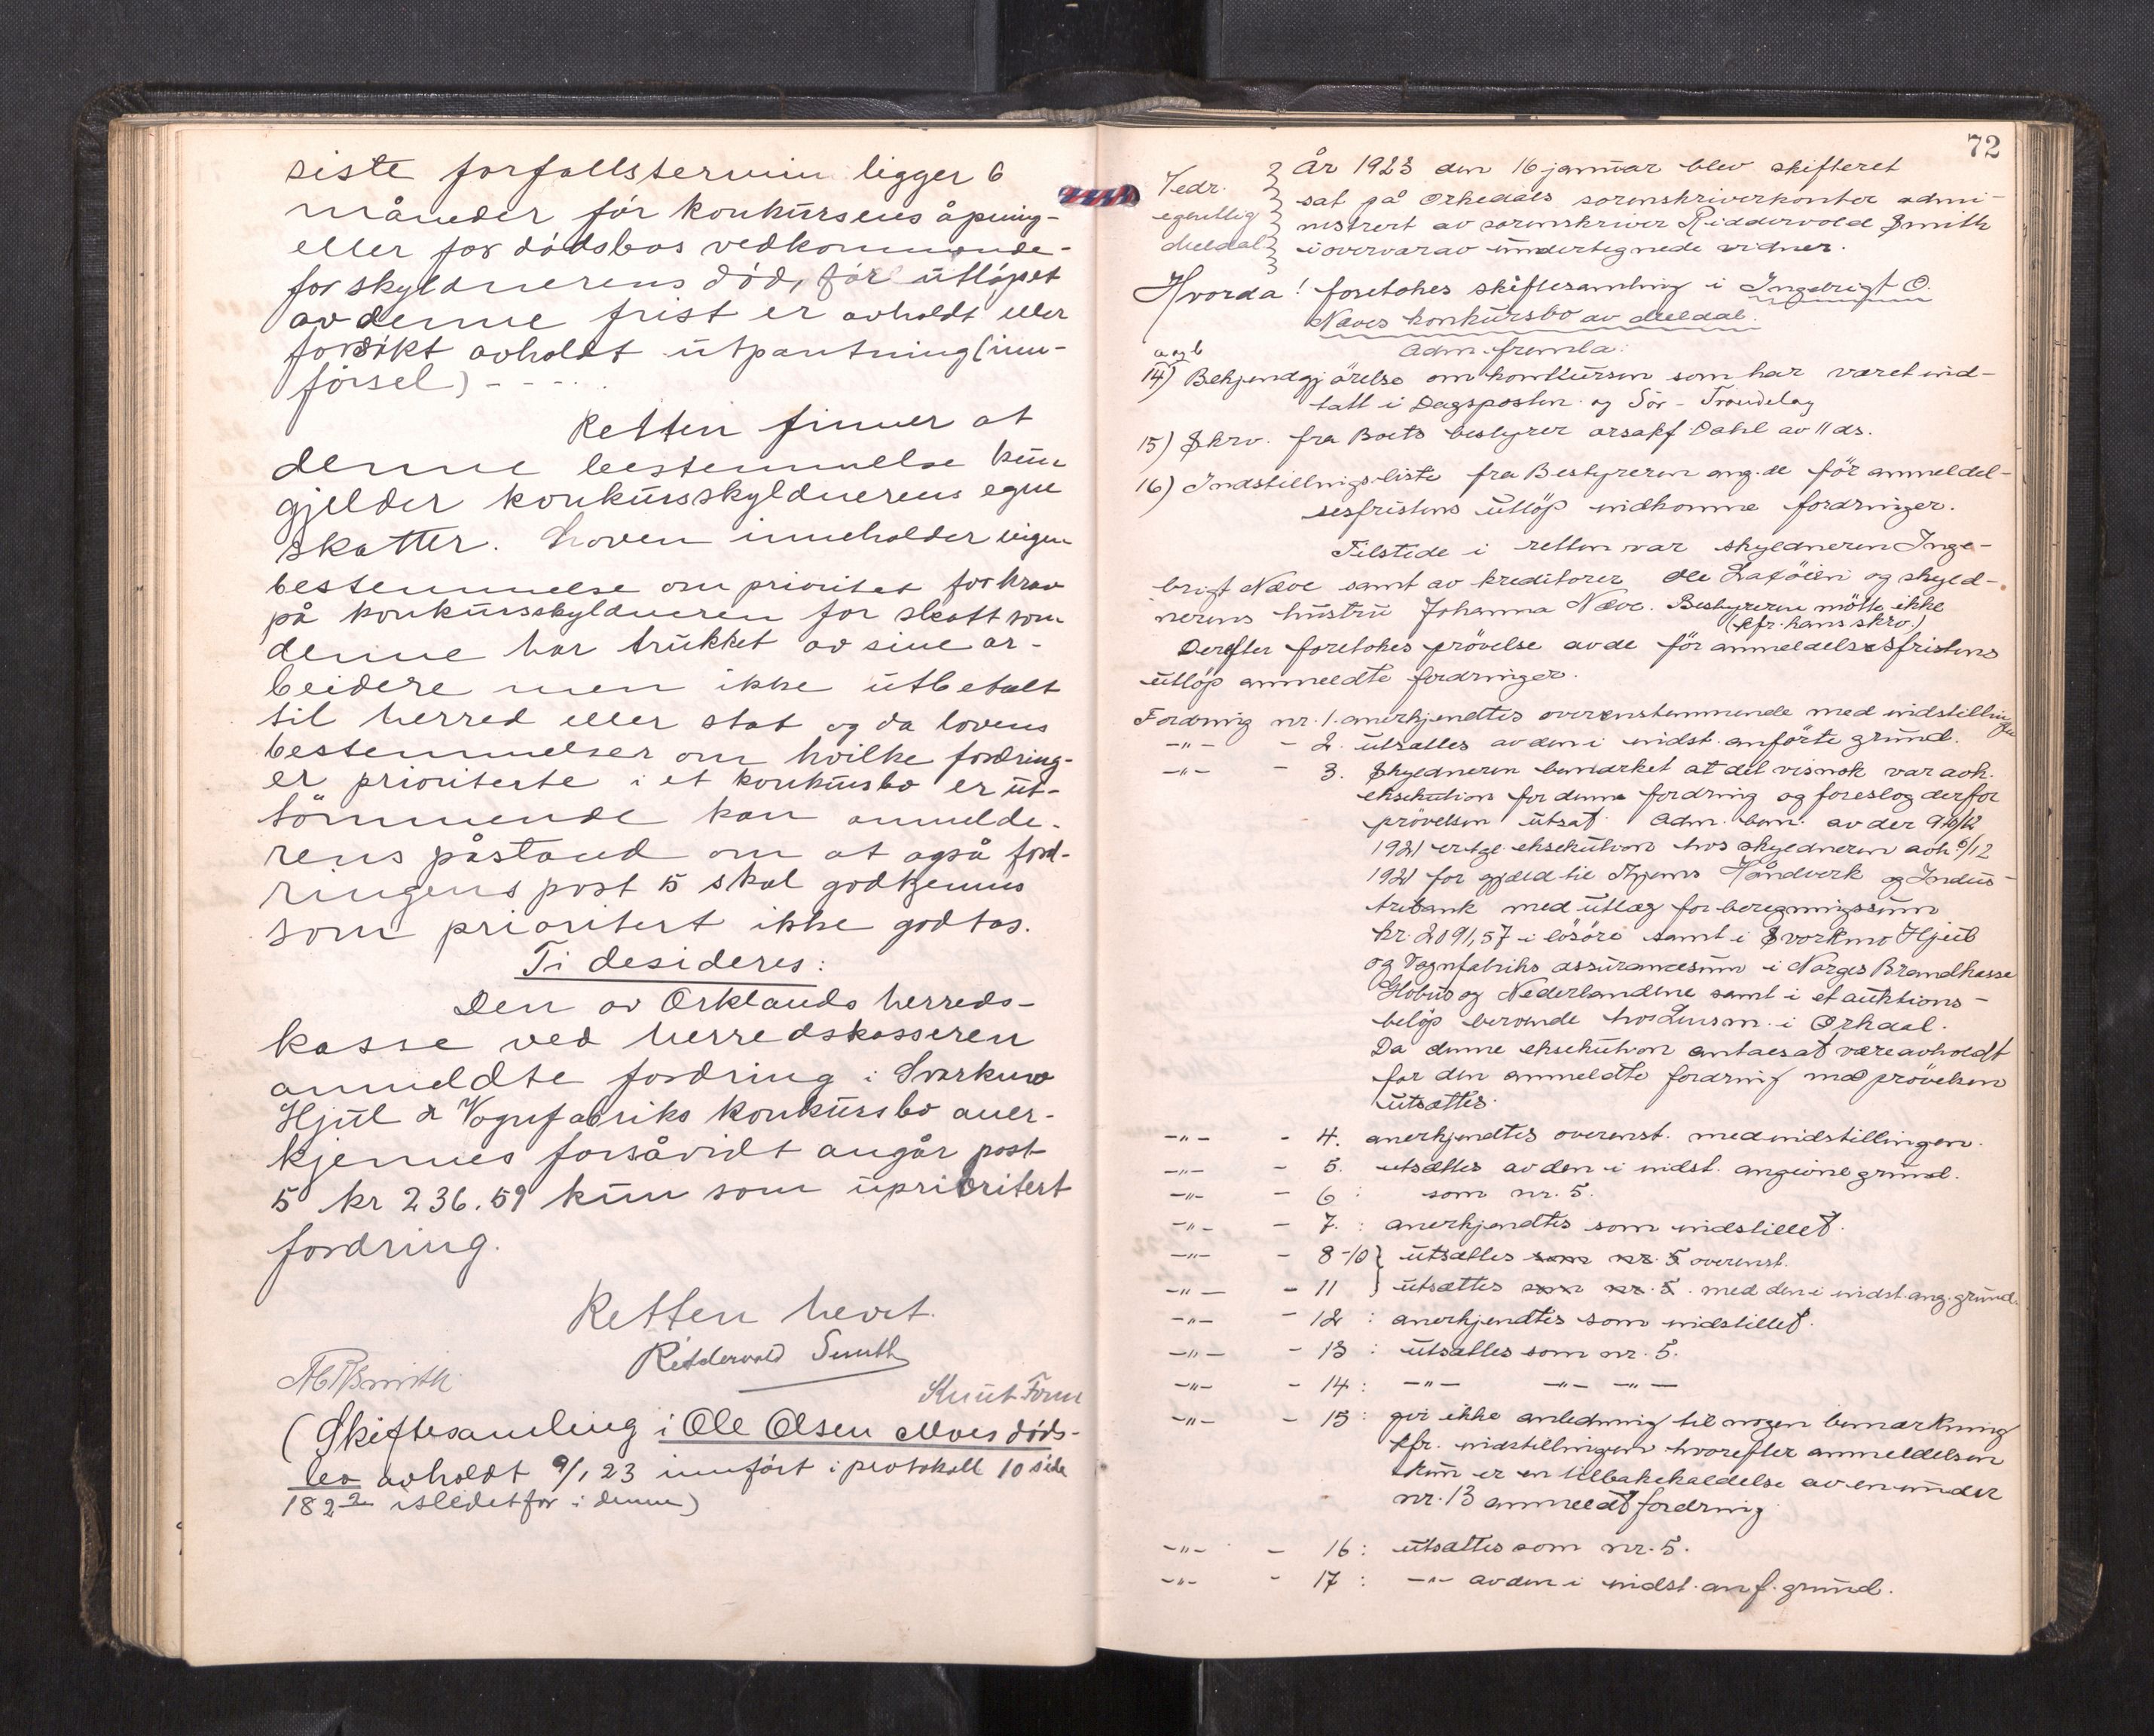 siste forfallstermin ligger 6
måneder før konkursens åpning -
eller for dødsbos vedkommende -
for skyldnerens död, før utløpet
av denne frist er avholdt eller
forsökt avholdt utpantning (inn-
försel) - - - .
Retten finner at
denne bestemmelse kun
gjelder konkursskyldnerens egne
skatter. Loven inneholder ingen
bestemmelse om prioritet for krav
på konkursskyldneren for skatt som
denne har trukket av sine ar-
beidere men ikke utbetalt
til herred eller stat og da lovens
bestemmelser om hvilke fordring-
er prioriterte i et konkursbo er ut-
tömmende kan anmelde-
rens påstand om at også ford-
ringens post 5 skal godkjennes
som prioritert ikke godtas.
Ti desideres:
Den av Orklands herreds-
kasse ved herredskasseren
anmeldte fordring i Svorkmo
Hjul & Vognfabriks konkursbo aner-
kjennes forsåvidt angår post
5 kr 236.59 kun som uprioritert
fordring.
Retten hevet.
Riddervold Smith
Knut Forn
(Skiftesamling i Ole Olsen Moes döds-
bo avholdt 9/1 23 innfört i protokoll 10 side
182 istedetfor i denne)
72
Vedr.
egentlig
Meldal
År 1923 den 16 januar blev skifteret
sat på Orkedals sorenskriverkontor admi-
nistrert av sorenskriver Riddervold Smith
i overvær av undertegnede vidner.
Hvorda! foretokes skiftesamling i Ingebrigt O.
Næves konkursbo av Meldal.
Adm. fremla:
a og b
14) Bekjendtgjörelse om konkursen som har været ind-
tatt i Dagsposten og Sör-Trøndelag
15) Skrv. fra Boets bestyrer orsakf Dahl av 11 ds.
16) Indstillingsliste fra Bestyreren ang. de för anmeldel-
sesfristens utlöp indkomne fordringer.
Tilstede i retten var skyldneren Inge-
brigt Næve samt av kreditorer Ole Laxöien og skyld-
nerens hustru Johanna Næve. Bestyreren mötte ikke
(kfr. hans skrv.)
Derefter foretokes prövelse av de för anmeldelsesfristens
utlöp anmeldte fordringer.
Fordring nr. 1. anerkjendtes overenstemmende med indstillingen
-"- - 2. utsattes av den i indst. anförte grund.
-"- - 3. Skyldneren bemærket at det visnok var avh.
eksekution for denne fordring og foreslog derfor
prövelsen utsat. Adm. bem. av der 9 10/12
1921 er tgl. eksekution hos skyldneren avh. 6/12
1921 for gjæld til Trjems Håndverk og Indus-
tribank med utlæg for beregningssum
kr. 2091,57 i lösöre samt i Svorkmo Hjul
og Vognfabriks assurancesum i Norges Brandkasse
Globus og Nederlandene samt i et auktions-
belöp beroende hos Lensm. i Orkdal.
Da denne eksekution antaes at være avholdt
for den anmeldte fordring må prövelsen
utsættes.
-"- - 4. anerkjendtes overenst. med indstillingen.
-"- - 5. utsættes av den i indst. angivne grund.
-"- - 6 : som nr. 5.
-"- - 7. : anerkjendtes som indstillet.
-"- - 8-10 } utsattes som nr. 5 overenst.
-"- - 11 } utsættes som nr. 5. med den i indst. ang. grund.
-"- - 12 : anerkjendtes som indstillet.
-"- - 13 : utsattes som nr. 5.
-"- - 14 : -"- -"- -"-
-"- - 15 : gir ikke anledning til nogen bemærkning
kfr. indstillingen hvorefter anmeldelsen
kun er en tilbakekaldelse av en under
nr. 13 anmeldt fordring
-"- - 16 : utsattes som nr. 5.
-"- - 17 : -"- av den i indst. anf. grund.